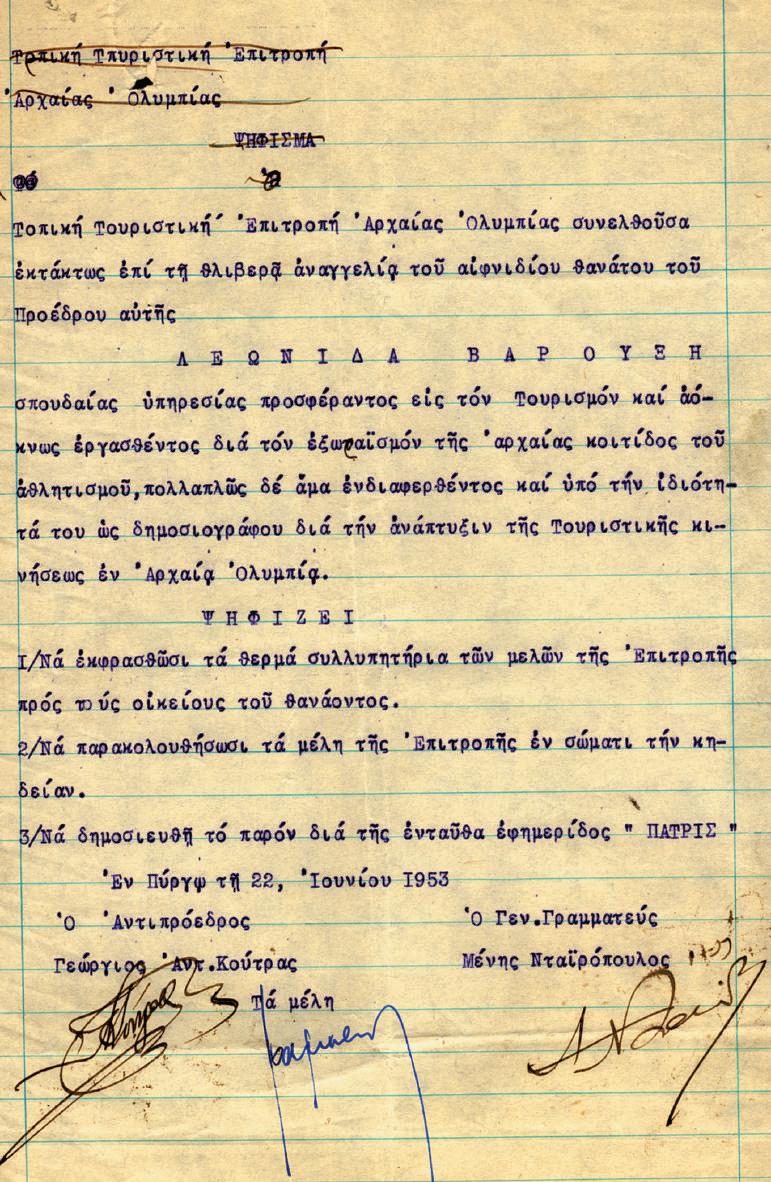 Τοπική Τπυριστική Ἐπιτροπή
Ἀρχαίας Ὀλυμπίας
ΨΗΦΙΣΜΑ
Τοπική Τουριστική Ἐπιτροπή Ἀρχαίας Ὀλυμπίας συνελθοῦσα
ἐκτάκτως ἐπί τῇ θλιβερᾷ ἀναγγελίᾳ τοῦ αἰφνιδίου θανάτου τοῦ
Προέδρου αὐτῆς
ΛΕΩΝΙΔΑ ΒΑΡΟΥΞΗ
σπουδαίας ὑπηρεσίας προσφέραντος εἰς τόν Τουρισμόν καί ἀό-
κνως ἐργασθέντος διά τόν ἐξωραϊσμόν τῆς ἀρχαίας κοιτίδος τοῦ
ἀθλητισμοῦ,πολλαπλῶς δέ ἅμα ἐνδιαφερθέντος καί ὑπό τήν ἰδιότη-
τά του ὡς δημοσιογράφου διά τήν ἀνάπτυξιν τῆς Τουριστικῆς κι-
νήσεως ἐν Ἀρχαίᾳ Ὀλυμπίᾳ.
ΨΗΦΙΖΕΙ
1/Νά ἐκφρασθῶσι τά θερμά συλλυπητήρια τῶν μελῶν τῆς Ἐπιτροπῆς
πρός τούς οἰκείους τοῦ θανάοντος.
2/Νά παρακολουθήσωσι τά μέλη τῆς Ἐπιτροπῆς ἐν σώματι τήν κη-
δείαν.
3/Νά δημοσιευθῇ τό παρόν διά τῆς ἐνταῦθα ἐφημερίδος " ΠΑΤΡΙΣ "
Ἐν Πύργῳ τῇ 22, Ἰουνίου 1953
Ὁ Ἀντιπρόεδρος Ὁ Γεν.Γραμματεύς
Γεώργιος Ἀντ.Κούτρας Μένης Νταϊρόπουλος
Τά μέλη